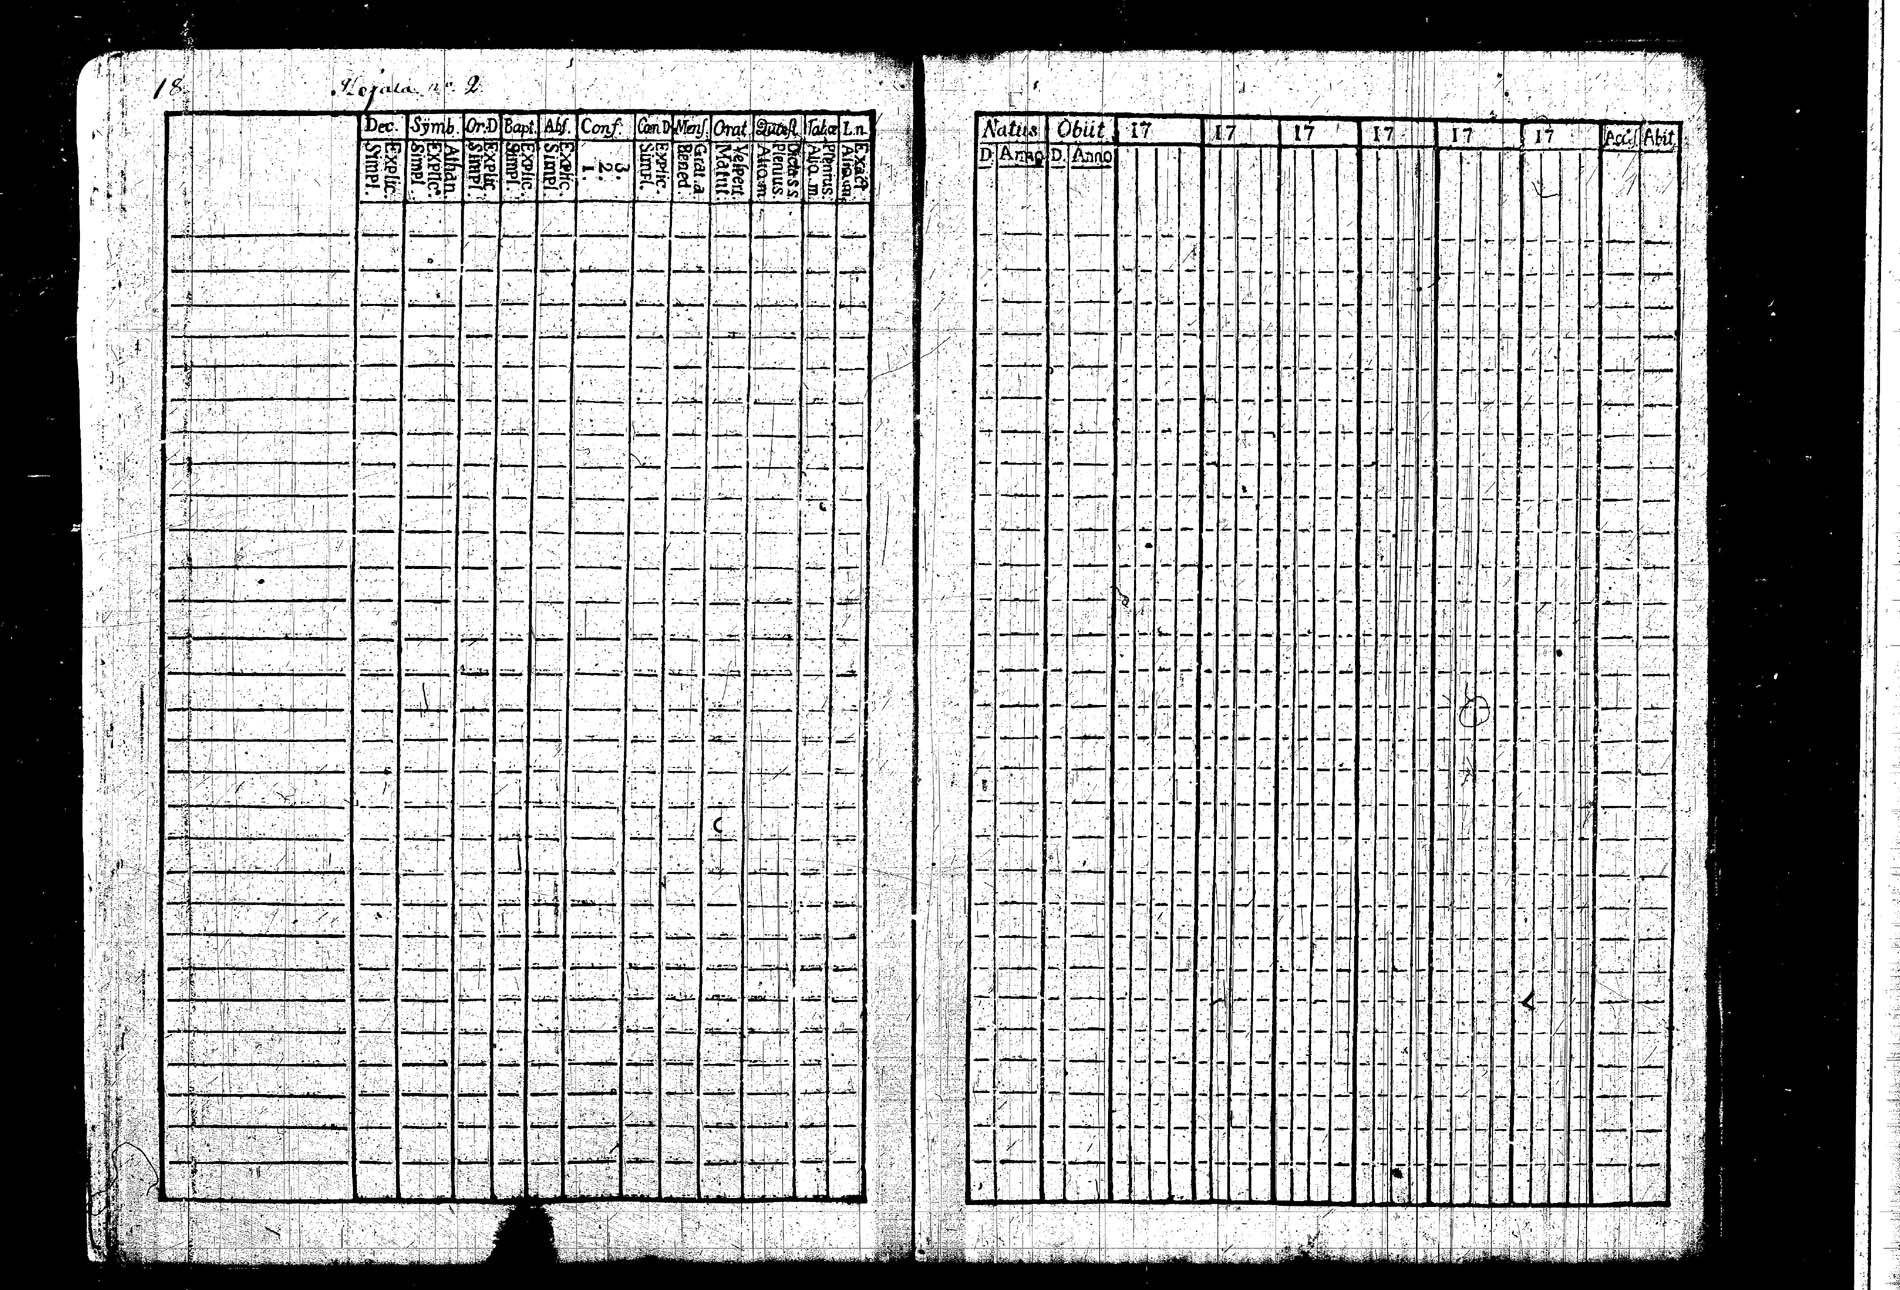 18. Kejala no 2
Dec. Symb. Or.D Bapt. Abs. Conf. Cœn.D Mens. Orat. Quæst. Tabæ L.n.
Explic. Simpl. Athan. Explic. Simpl. Explic. Simpl. Explic. Simpl. Explic. Simpl. 3. 2. 1. Explic. Simpl. Grat.a Bened Vespert. Matut. Plenius Aliq.m Plenius Aliq.m Exact
Natus Obiit 17 17 17 17 17 17 Acces. Abit
D. Anno D. Anno